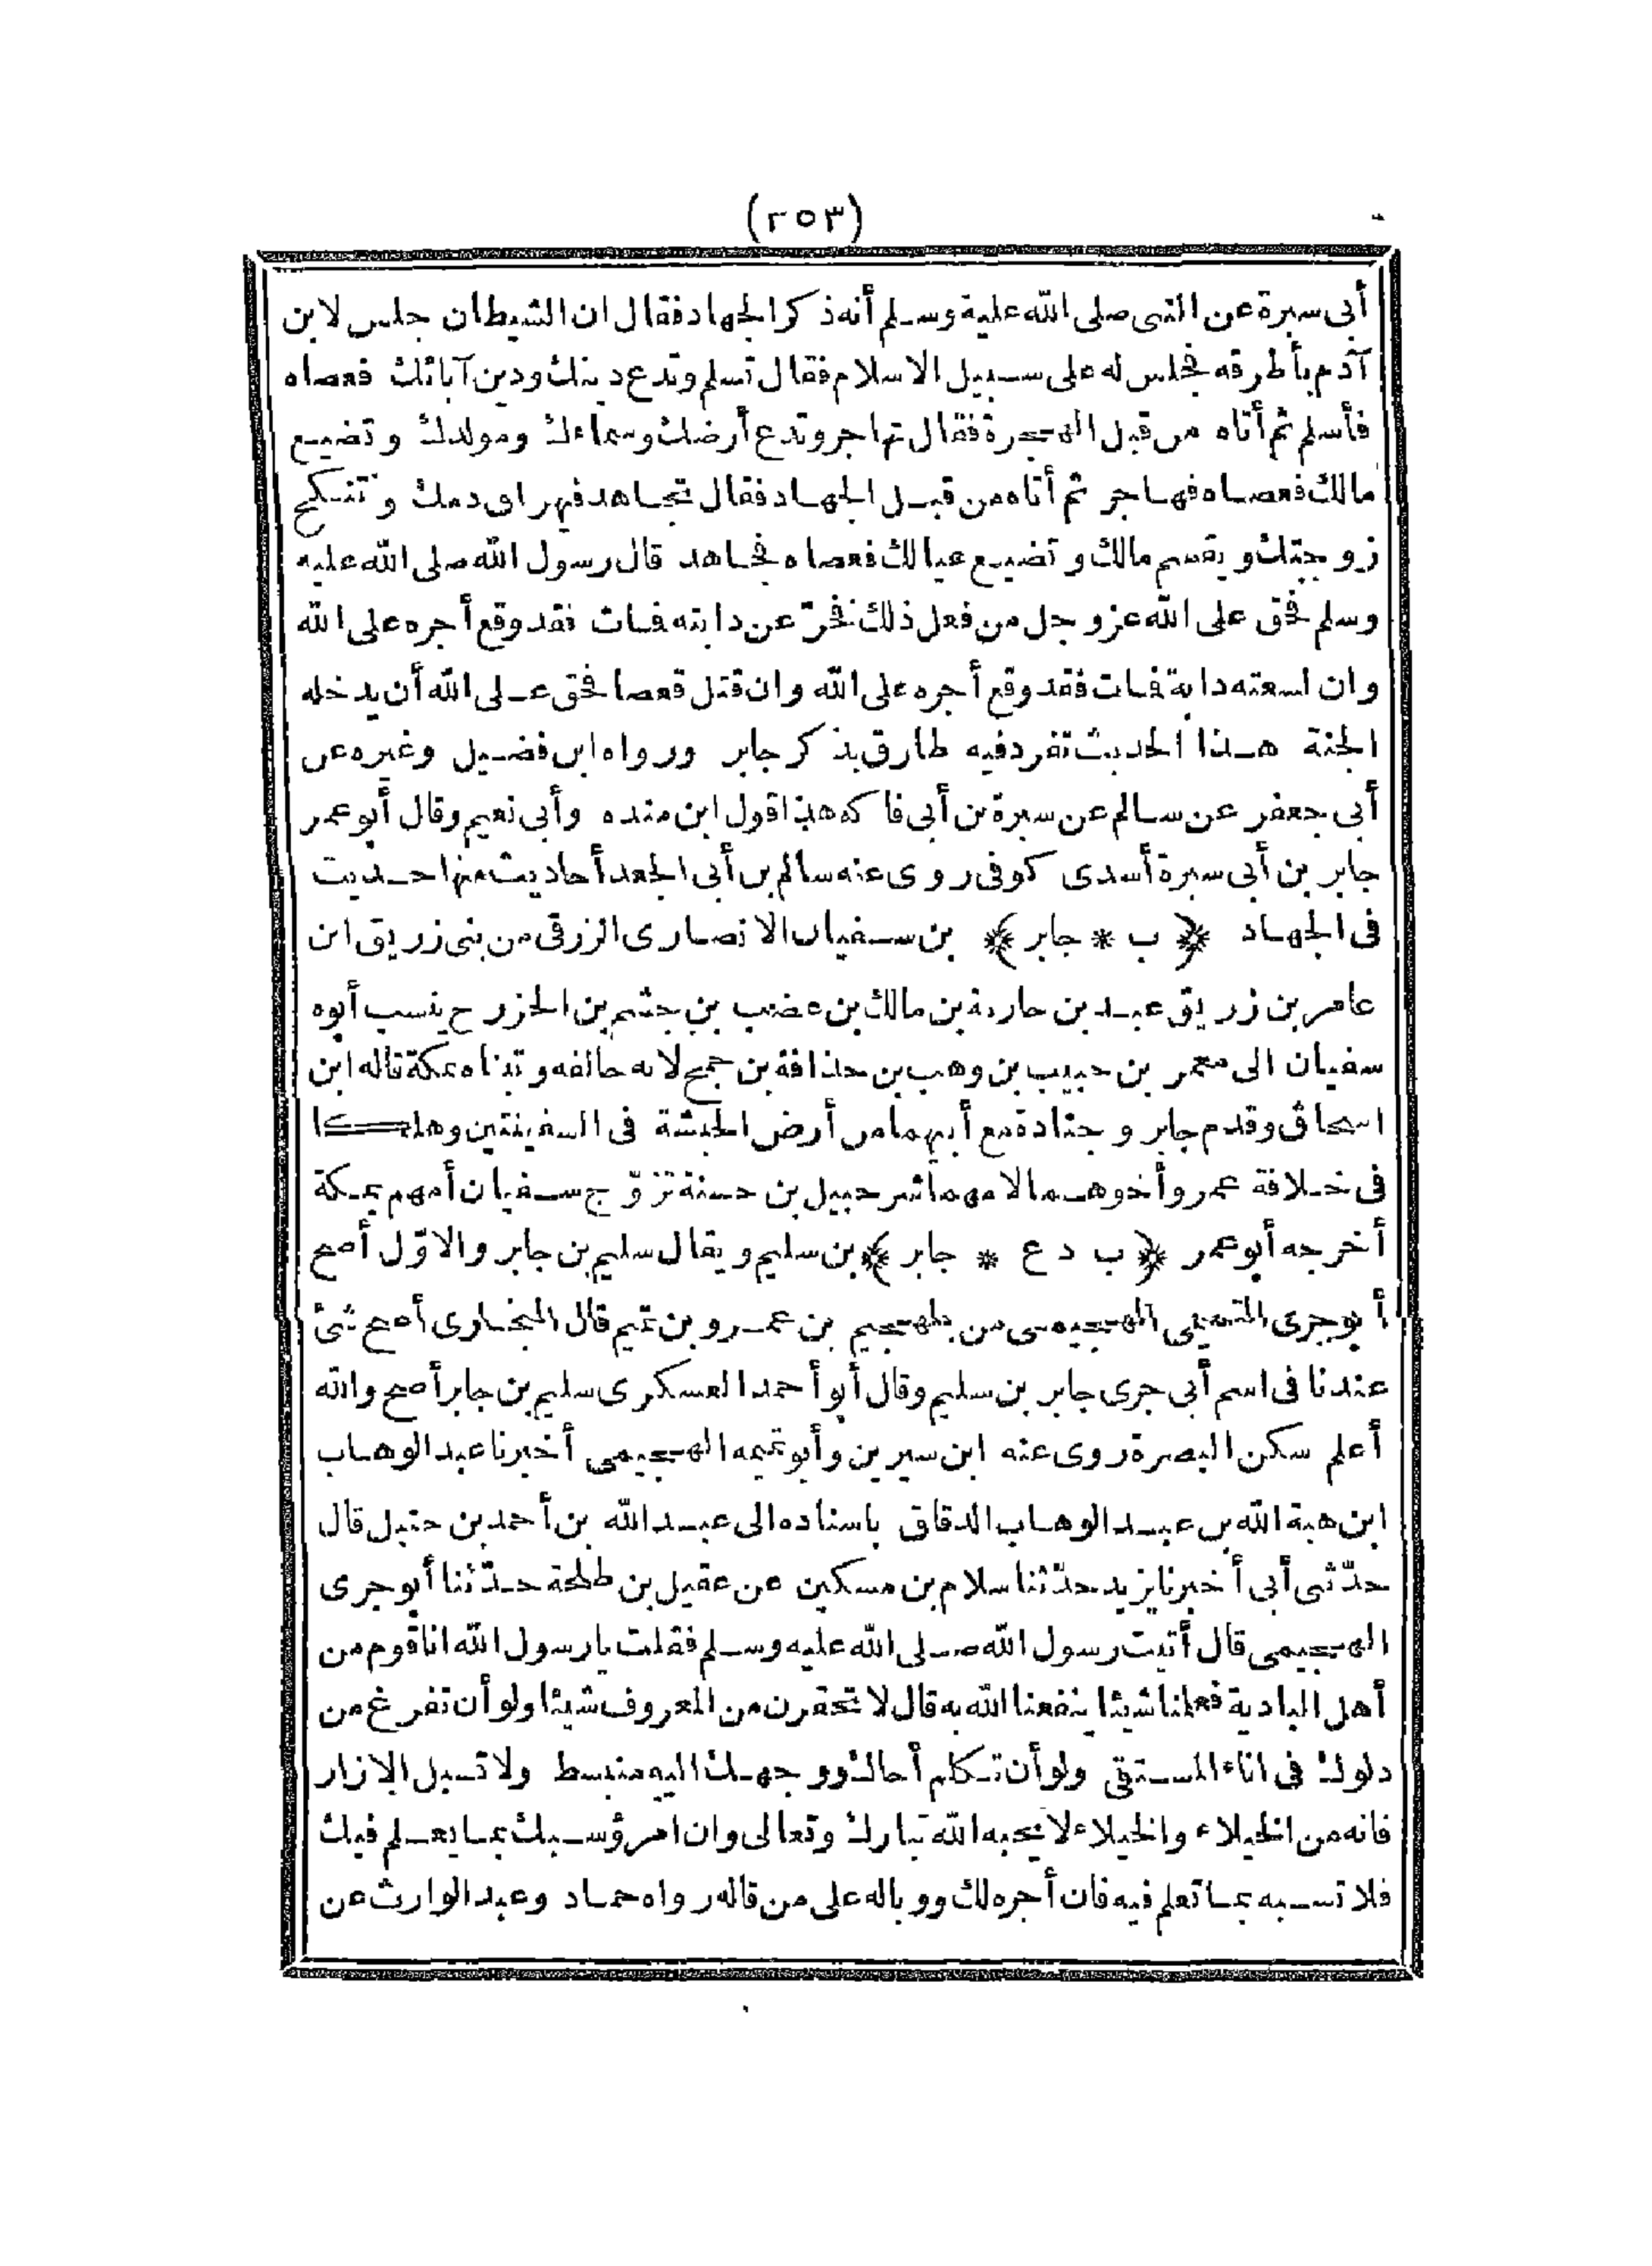 (٢٥٣)
أبى سبرة عن النبى صلى الله عليه وسلم أنه ذكر الجهاد فقال ان الشيطان جلس لابن
آدم بأطرقه فجلس له على سبيل الاسلام فقال تسلم وتدع دينك ودين آبائك فعصاه
فأسلم ثم أتاه من قبل الهجرة فقال تهاجر وتدع أرضك وسماءك ومولدك وتضيع
مالك فعصاه فهاجر ثم أتاه من قبل الجهاد فقال تجاهد فيهراق دمك وتنكح
زوجتك ويقسم مالك وتضيع عيالك فعصاه فجاهد قال رسول الله صلى الله عليه
وسلم فحق على الله عز وجل من فعل ذلك فخرّ عن دابته فمات فقد وقع أجره على الله
وان لسعته دابة فمات فقد وقع أجره على الله وان قتل قعصا فحق على الله أن يدخله
الجنة هذا الحديث تفرد فيه طارق بذكر جابر ورواه ابن فضيل وغيره عن
أبى جعفر عن سالم عن سبرة بن أبى فاكه هذا قول ابن منده وأبى نعيم وقال أبو عمر
جابر بن أبى سبرة أسدى كوفى روى عنه سالم بن أبى الجعد أحاديث منها حديث
فى الجهاد ﴿ب * جابر﴾ بن سفيان الانصارى الزرقى من بنى زريق ابن
عامر بن زريق عبد بن حارثة بن مالك بن غضب بن جشم بن الخزرج ينسب أبوه
سفيان الى معمر بن حبيب بن وهب بن حذافة بن جمح لانه حالفه وتبناه بمكة قاله ابن
اسحاق وقدم جابر وجنادة مع أبيهما من أرض الحبشة فى السفينتين وهلكا
فى خلافة عمر وأخوهما لامهما شرحبيل بن حسنة تزوّج سفيان أمهم بمكة
أخرجه أبو عمر ﴿ب د ع * جابر﴾ بن سليم ويقال سليم بن جابر والاوّل أصح
أبو جرى التميمى الهجيمى من بلهجيم بن عمرو بن تميم قال البخارى أصح شئ
عندنا فى اسم أبى جرى جابر بن سليم وقال أبو أحمد العسكرى سليم بن جابر أصح والله
أعلم سكن البصرة روى عنه ابن سيرين وأبو تميمه الهجيمى أخبرنا عبد الوهاب
ابن هبة الله بن عبد الوهاب الدقاق باسناده الى عبد الله بن أحمد بن حنبل قال
حدّثنى أبى أخبرنا يزيد حدّثنا سلام بن مسكين عن عقيل بن طلحة حدّثنا أبو جرى
الهجيمى قال أتيت رسول الله صلى الله عليه وسلم فقلت يا رسول الله انا قوم من
أهل البادية فعلمنا شيئا ينفعنا الله به قال لا تحقرن من المعروف شيئا ولو أن تفرغ من
دلوك فى اناء المستقى ولو أن تكلم أخاك ووجهك اليه منبسط ولا تسبل الازار
فانه من الخيلاء والخيلاء لا يحبه الله تبارك وتعالى وان امرؤ سبك بما يعلم فيك
فلا تسبه بما تعلم فيه فان أجره لك ووباله على من قاله رواه حماد وعبد الوارث عن